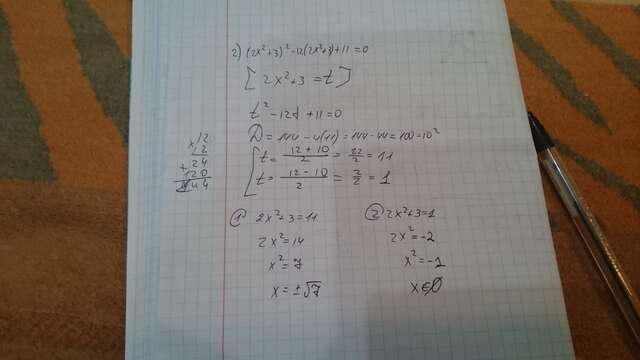 2) (2x²+3)²-12(2x²+3)+11=0
[2x²+3=t]
t²-12t+11=0
D=144-4(11)=144-44=100=10²
t=(12+10)/2=22/2=11
t=(12-10)/2=2/2=1
×12
12
+24
120
144
① 2x²+3=11
2x²=14
x²=7
x=±√7
② 2x²+3=1
2x²=-2
x²=-1
x∈∅